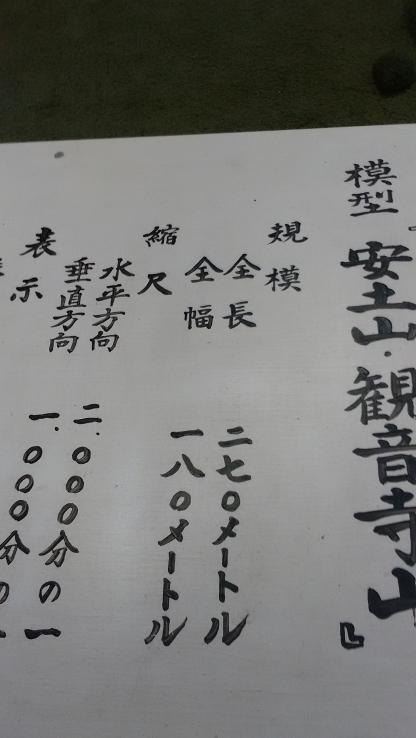 模型『安土山・観音寺山』
規模
全長 二七〇メートル
全幅 一八〇メートル
縮尺
水平方向 二.〇〇〇分の一
垂直方向 一.〇〇〇分の一
表示